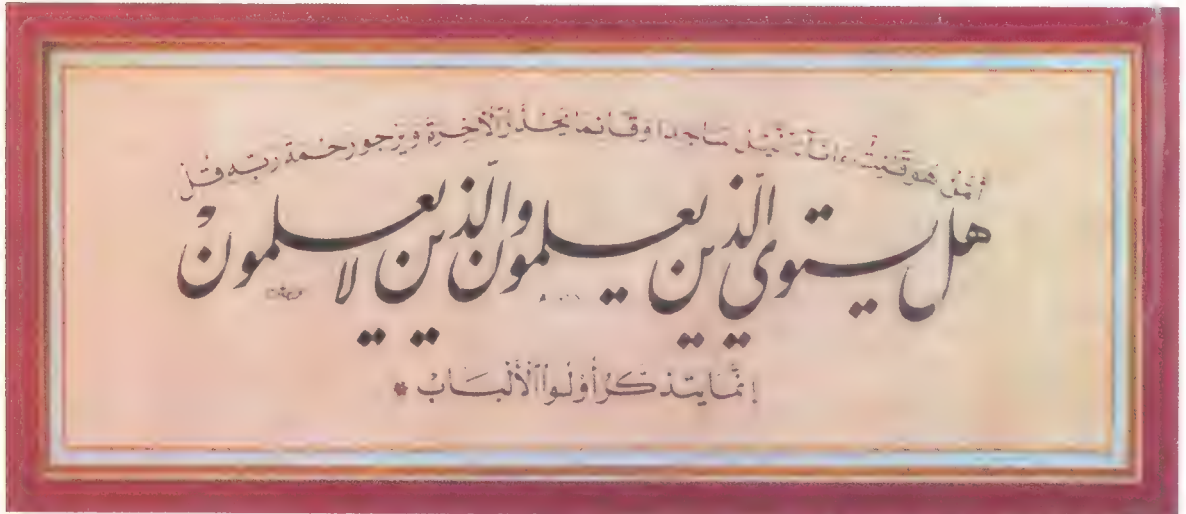 أمن هو قنت ءاناء اليل ساجدا وقائما يحذر الآخرة ويرجو رحمة ربه قل
هل يستوي الذين يعلمون والذين لا يعلمون
إنما يتذكر أولوا الألباب